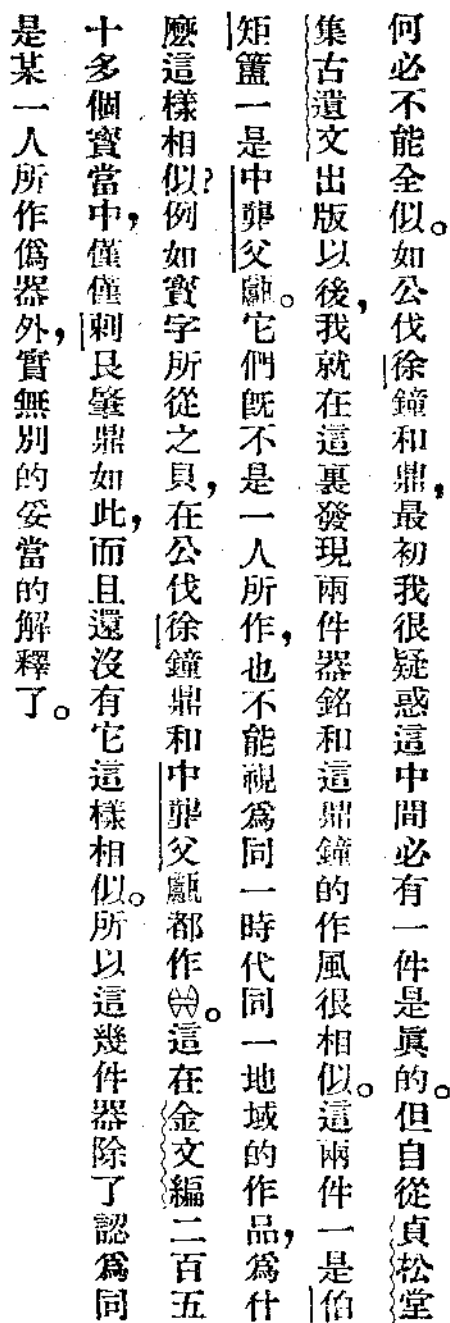 何必不能全似。如公伐徐鐘和鼎,最初我很疑惑這中間必有一件是眞的。但自從貞松堂
集古遺文出版以後,我就在這裏發現兩件器銘和這鼎鐘的作風很相似。這兩件一是伯
矩簠一是中龏父甗。它們旣不是一人所作,也不能視爲同一時代同一地域的作品,爲什
麽這樣相似?例如寶字所從之貝,在公伐徐鐘鼎和中龏父甗都作。這在金文編二百五
十多個寶當中,僅僅剌㠱肇鼎如此,而且還沒有它這樣相似。所以這幾件器除了認爲同
是某一人所作僞器外,實無別的妥當的解釋了。